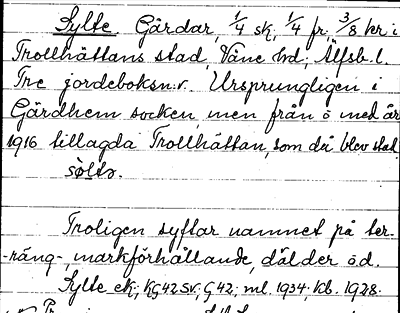 Sylte. Gårdar, 1/4 sk, 1/4 fr. 3/8 kr i
Trollhättans stad, Väne hd, Älfsb. l.
Tre jordeboksn:r. Ursprungligen i
Gärdhem socken, men från o med år
1916 tillagda Trollhättan, som då blev stad.
Troligen syftar namnet på ter-
-räng-, markförhållande, dälder od.
Sylte ek; KG42Sv; G42; ml. 1934; kb. 1928.